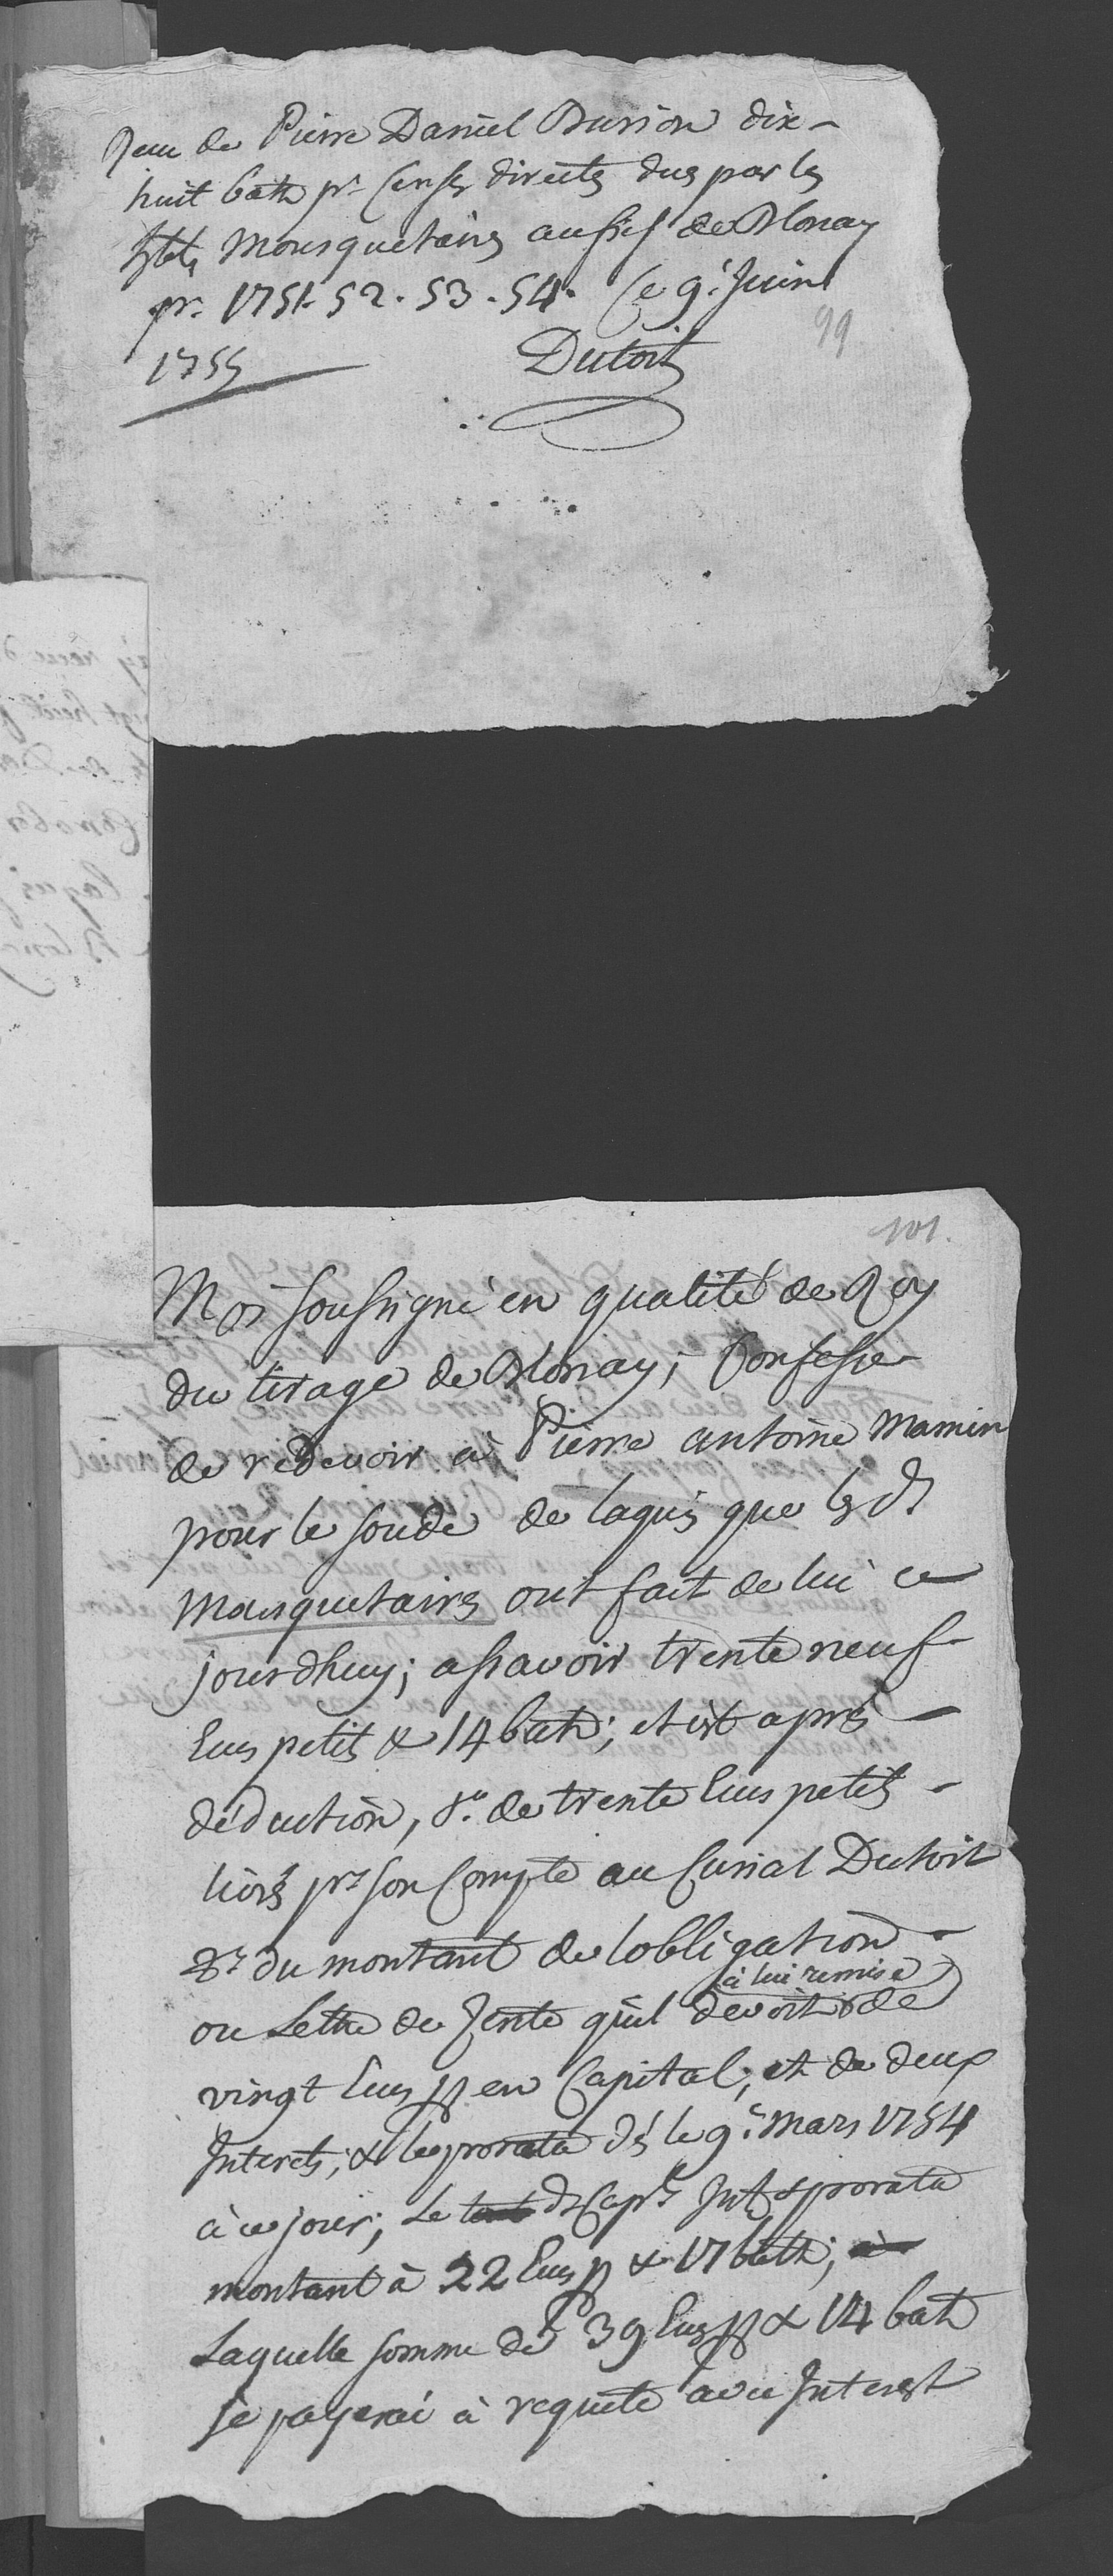 Reçu de Pierre Daniel Burrion dix-
huit batz pr. Censes directes dues par les
hbles Mousquetaires au fief de Blonay
pr. 1751. 52. 53. 54. Ce 9e. Juin
1755
Dutoit
99
101.
Moi soussigné en qualité de Roy
du tirage de Blonay; Confesse
de redevoir à Pierre antoine Mamin
pour le soude de laquis que les dts
Mousquetaires ont fait de lui ce
jourdhuy; assavoir trente neuf
Eus petits & 14 batz; et ist après
déduction, 1o. de trente Eus petits
livrés pr. son Compte au Curial Dutoit
2o. du montant de lobligation
à lui remise
ou Lettre de Rente quil devoit de
vingt Eus pp en Capital; et de deux
Interets; & le prorata dès le 9e. Mars 1754
à ce jour; Le dt Capl. Int. & prorata
montant à 22 Eus pp & 17 batz;
Laquelle somme de 39 Eus pp & 14 batz
je payerai à requete avec Interest